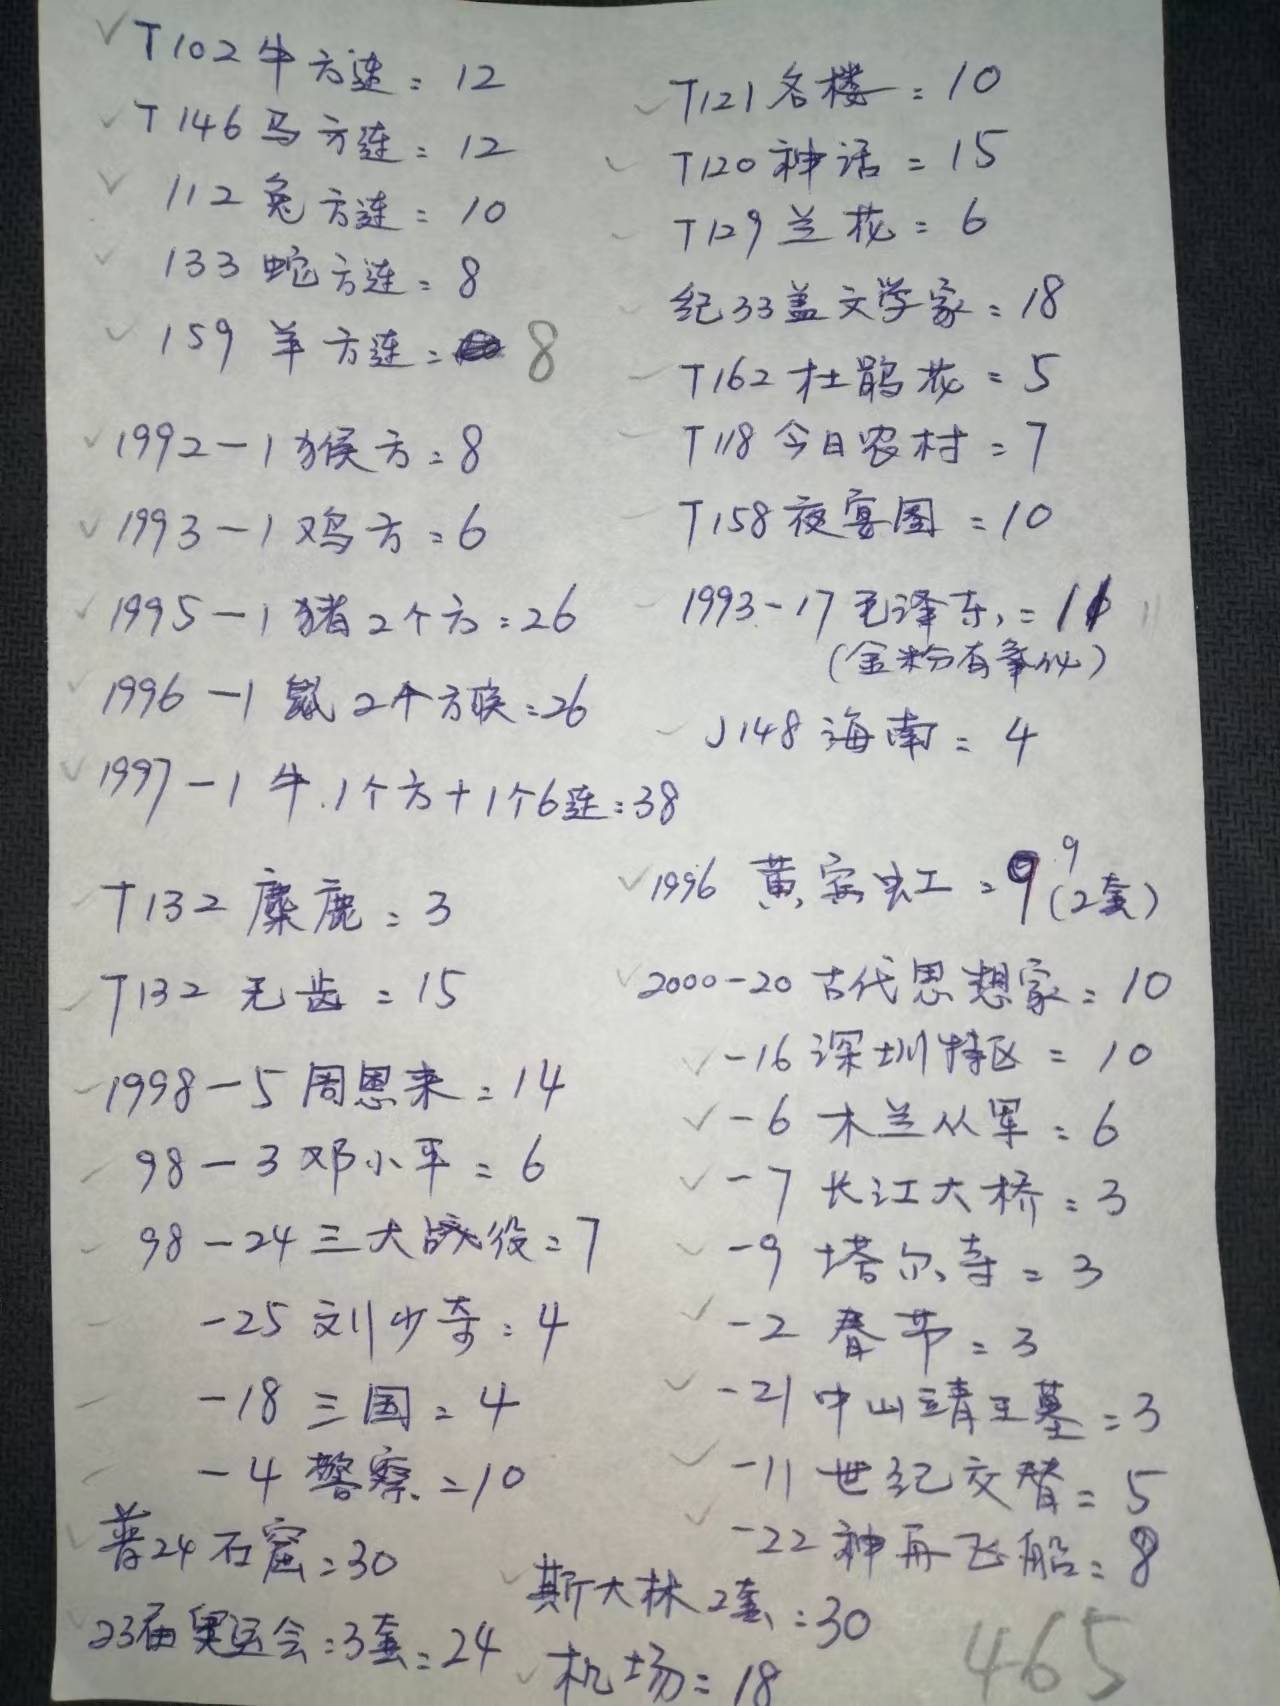 T102 牛方连 = 12
T146 马方连 = 12
112 兔方连 = 10
133 蛇方连 = 8
159 羊方连 = 8
1992-1 猴方 = 8
1993-1 鸡方 = 6
1995-1 猪2个方 = 26
1996-1 鼠2个方联 = 26
1997-1 牛.1个方+1个6连 = 38
T132 麋鹿 = 3
T132 无齿 = 15
1998-5 周恩来 = 14
98-3 邓小平 = 6
98-24 三大战役 = 7
-25 刘少奇 = 4
-18 三国 = 4
-4 警察 = 10
普24 石窟 = 30
23届奥运会 = 3套 = 24
T121 名楼 = 10
T120 神话 = 15
T129 兰花 = 6
纪33盖文学家 = 18
T162 杜鹃花 = 5
T118 今日农村 = 7
T158 夜宴图 = 10
1993-17 毛泽东 = 11 11
(金粉有争议)
J148 海南 = 4
1996 黄宾虹 = 9 9 (2套)
2000-20 古代思想家 = 10
-16 深圳特区 = 10
-6 木兰从军 = 6
-7 长江大桥 = 3
-9 塔尔寺 = 3
-2 春节 = 3
-21 中山靖王墓 = 3
-11 世纪交替 = 5
-22 神舟飞船 = 8
斯大林2套 = 30
机场 = 18
465